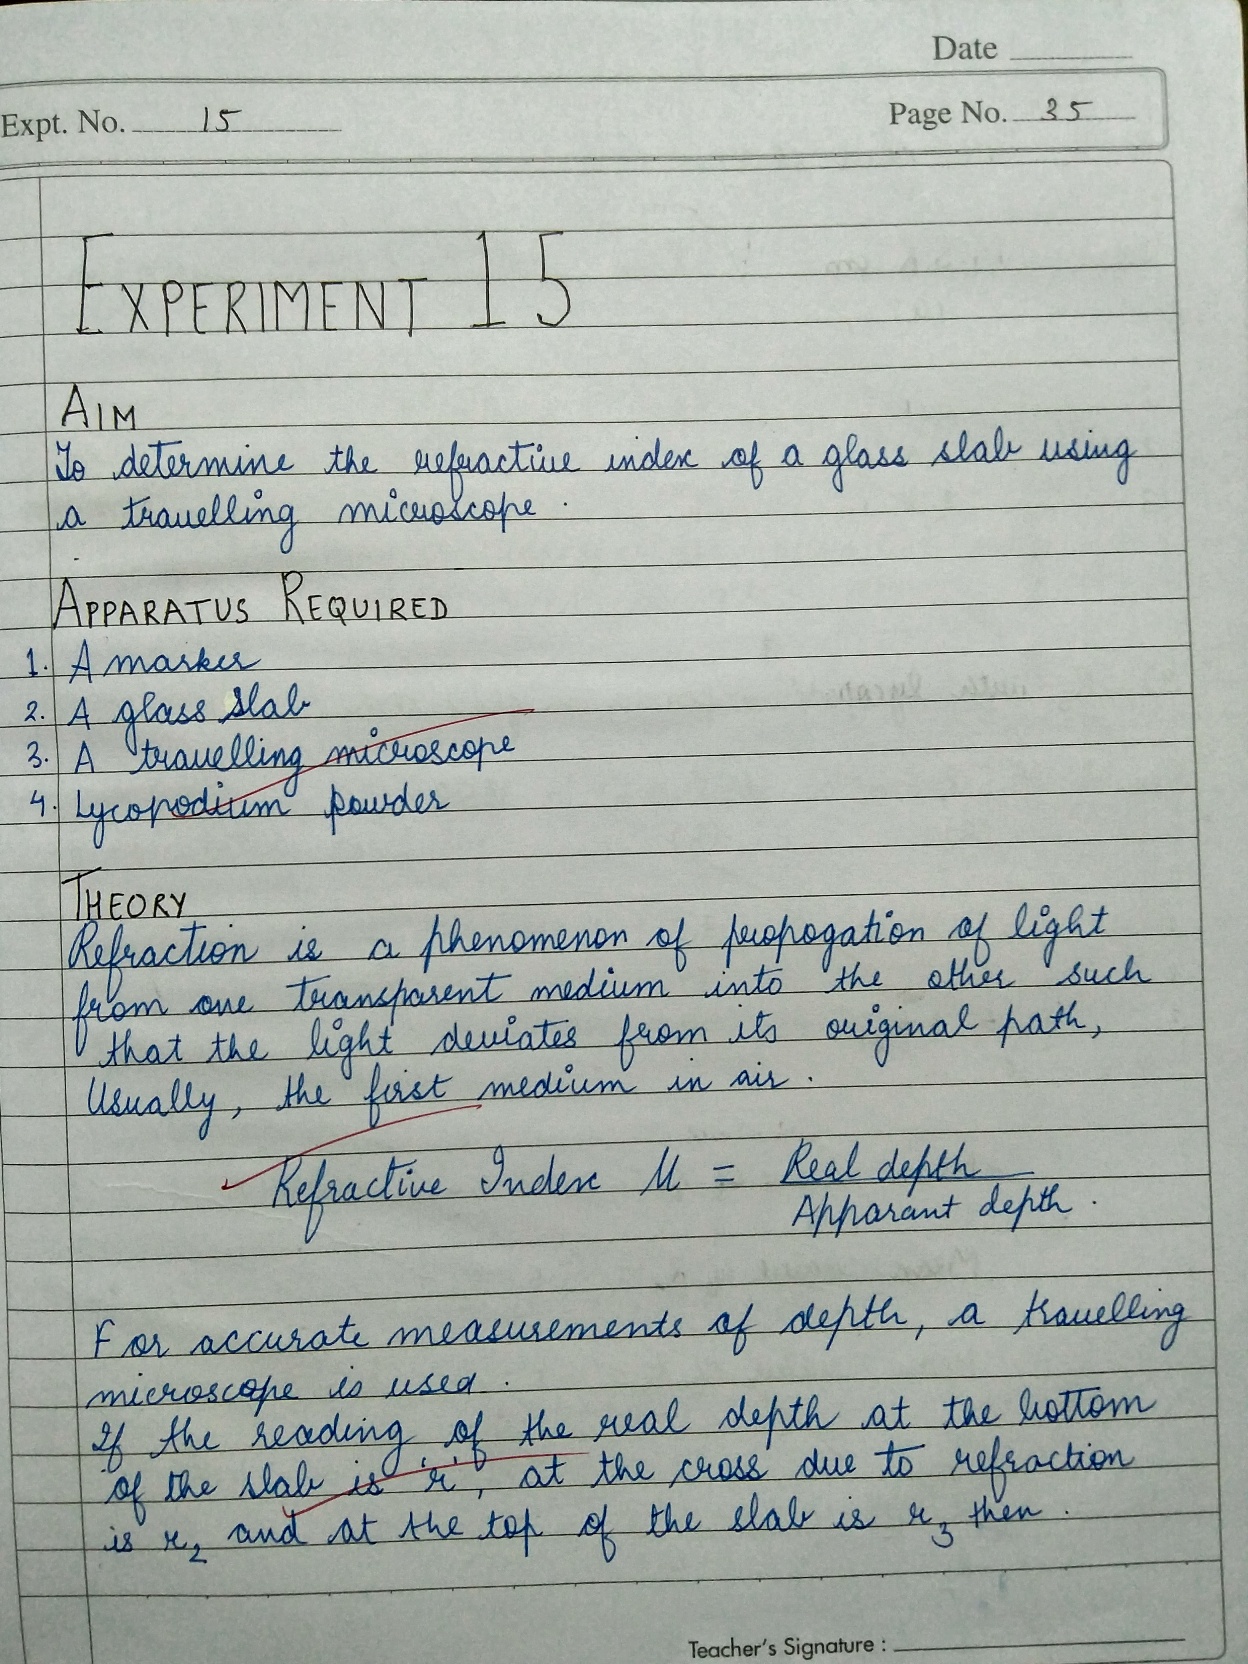 Date
Expt. No. 15
Page No. 35
EXPERIMENT 15
AIM
To determine the refractive index of a glass slab using
a travelling microscope.
APPARATUS REQUIRED
1. A marker
2. A glass slab
3. A travelling microscope
4. Lycopodium powder
THEORY
Refraction is a phenomenon of propogation of light
from one transparent medium into the other such
that the light deviates from its original path,
Usually, the first medium in air.
Refractive Index μ = Real depth
Apparant depth.
For accurate measurements of depth, a travelling
microscope is used.
If the reading of the real depth at the bottom
of the slab is 'r', at the cross due to refraction
is r₂ and at the top of the slab is r₃ then.
Teacher's Signature :